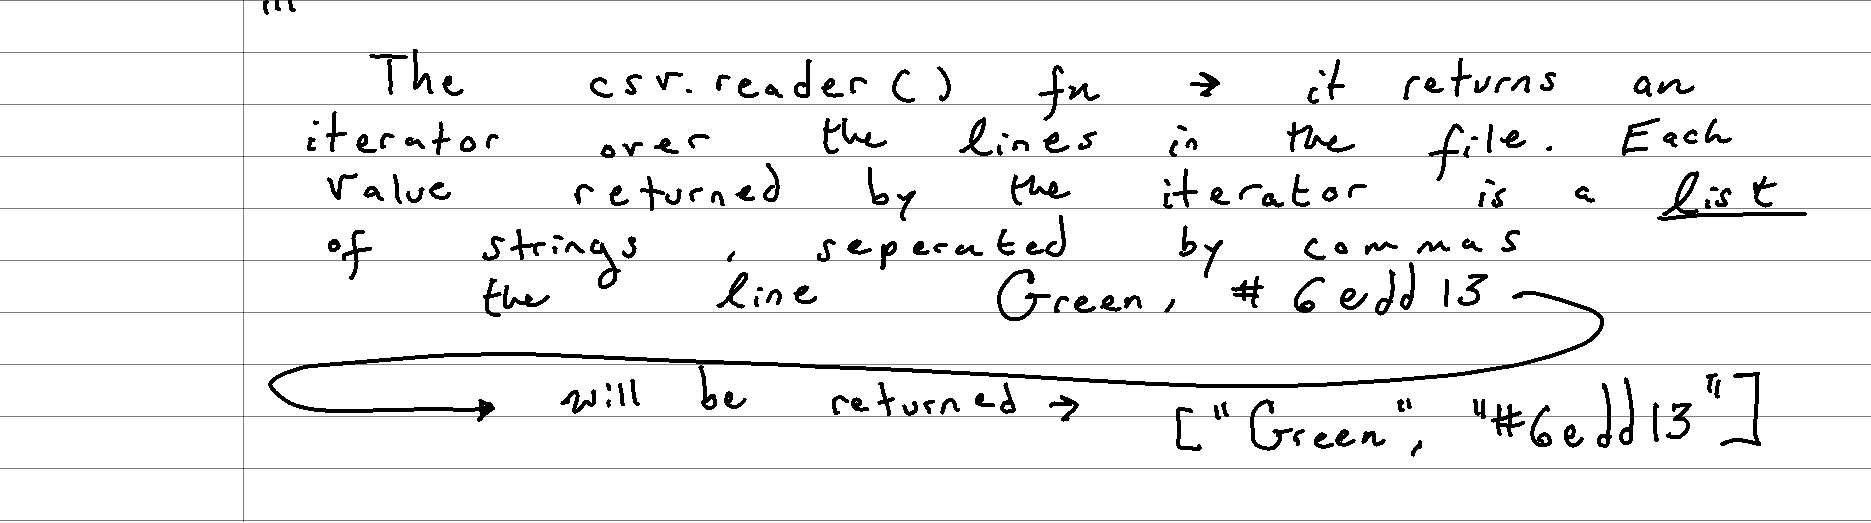 The csv.reader() fn → it returns an
iterator over the lines in the file. Each
value returned by the iterator is a list
of strings, seperated by commas
the line Green, #6edd13
→ will be returned → ["Green", "#6edd13"]